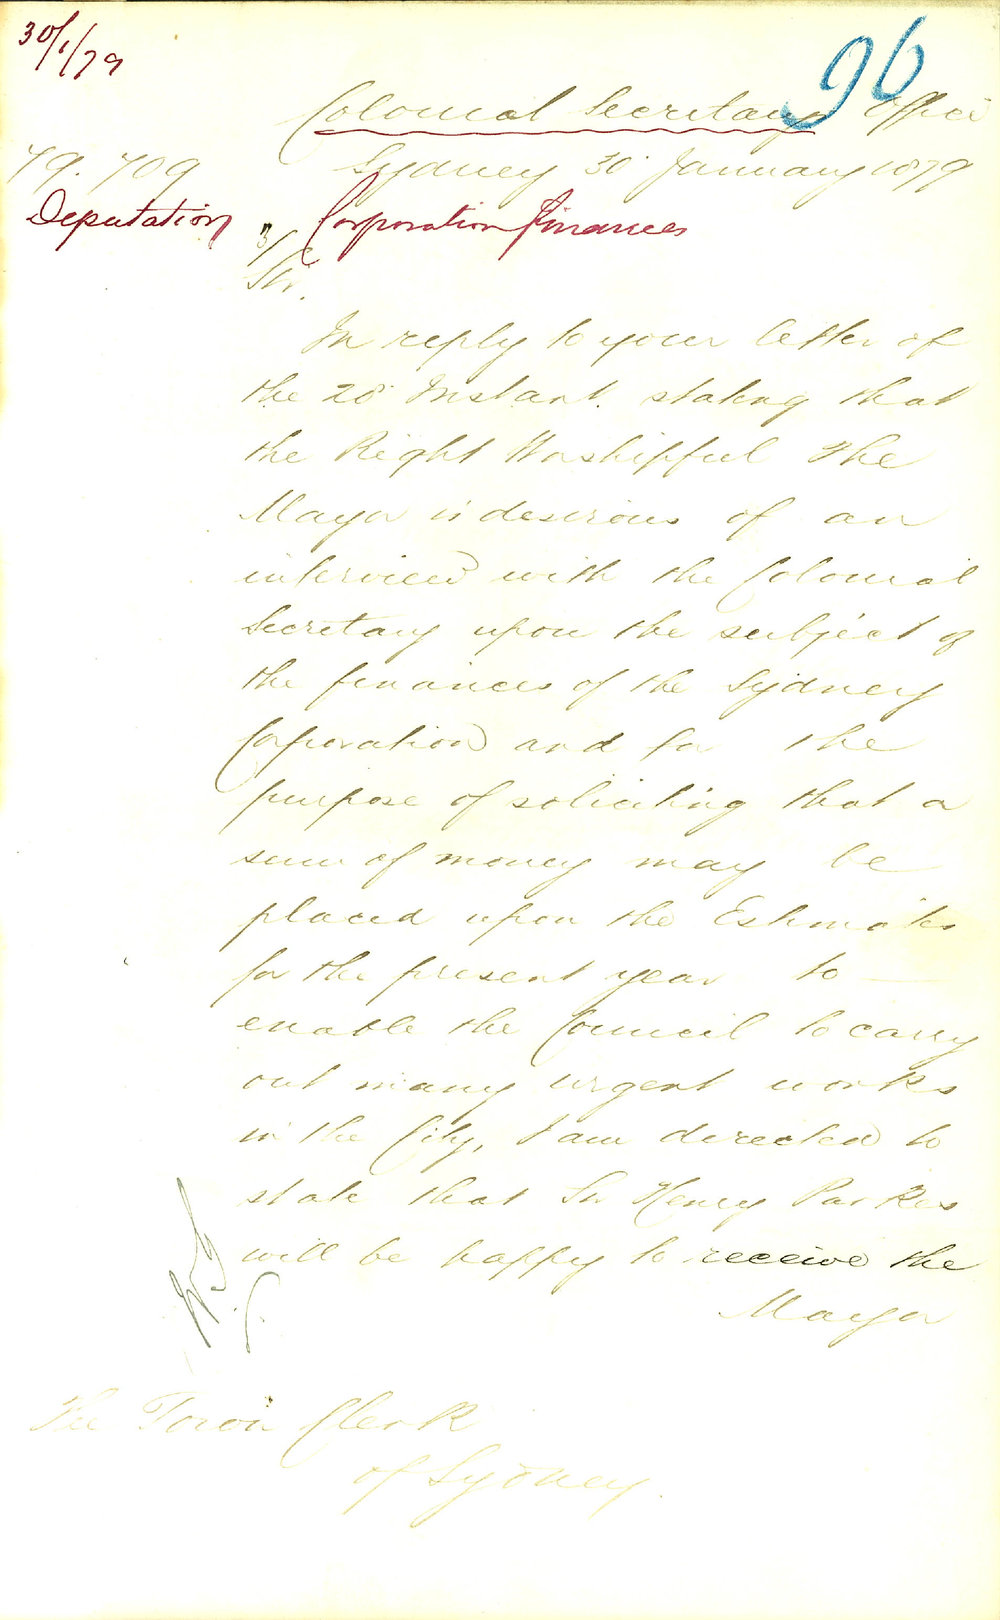 30/1/79
96
Colonial Secretary's Office
79.709
Sydney 30 January 1879
Deputation " Corporation Finances
Sir,
In reply to your letter of
the 28 Instant. stating that
the Right Worshipful The
Mayor is desirous of an
interview with the Colonial
Secretary upon the subject of
the finances of the Sydney
Corporation and for the
purpose of soliciting that a
sum of money may be
placed upon the Estimates
for the present year to —
enable the Council to carry
out many urgent works
in the City, I am directed to
state that Sir Henry Parkes
will be happy to receive the
Mayor
The Town Clerk
of Sydney.